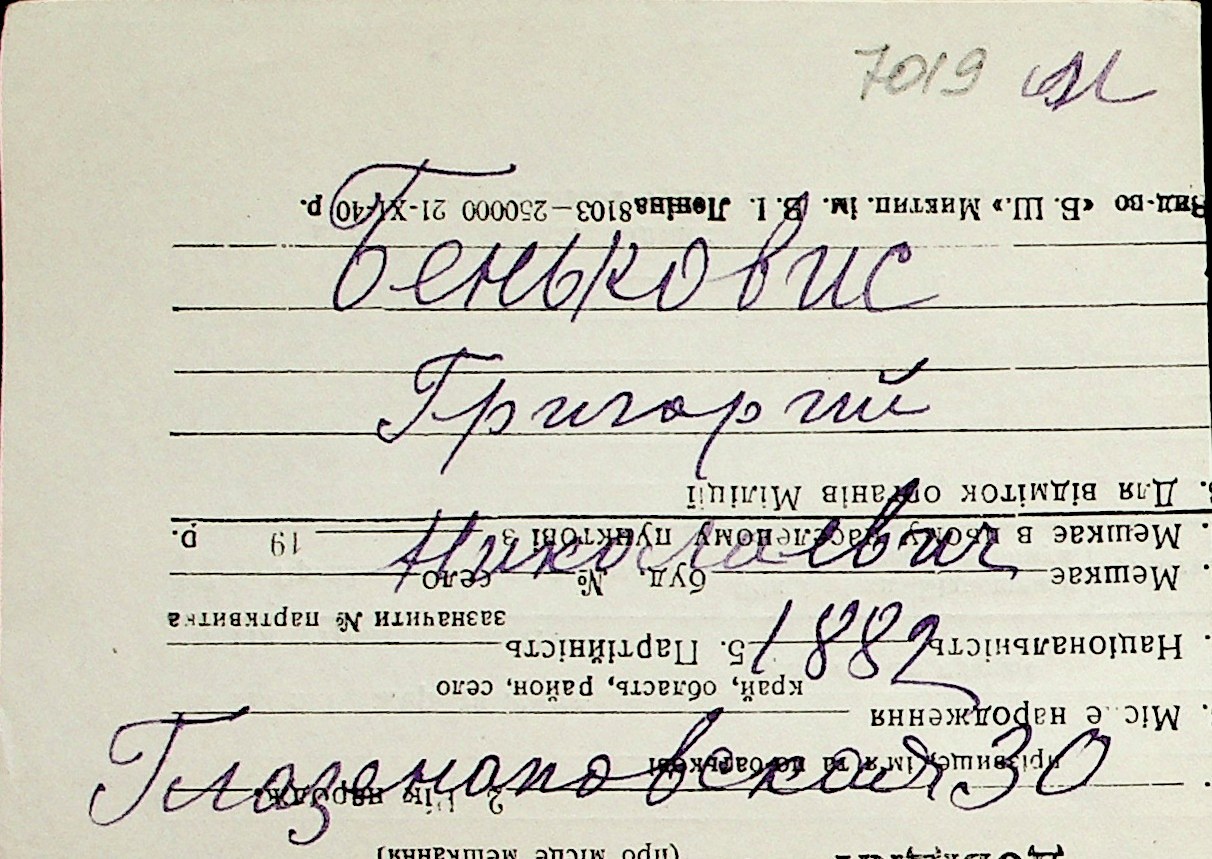 7019
Вид-во «Б. Ш.» Миктип. ім. В. І. Леніна 8103—250000 21-XI-40 р.
Беньковис
Григорий
Для відміток органів Міліції
Николаевич
Мешкає в цьому населеному пункті з 19 р.
Мешкає село № буд.
1882
Національність 5. Партійність
зазначити № партквитка
край, область, район, село
Місце народження
прізвище, ім'я та по батькові
2. Рік народж.
30
(про місце мешкання)